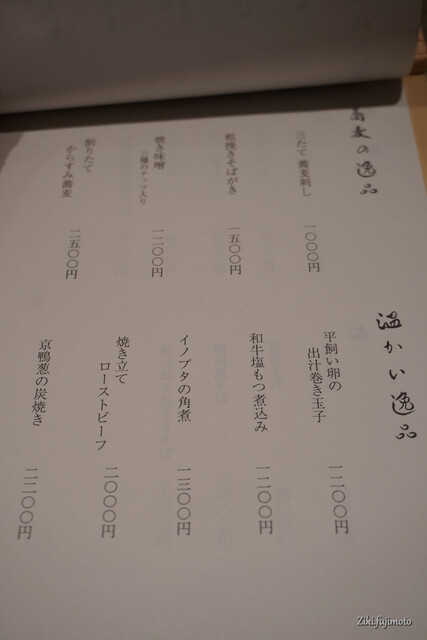 蕎麦の逸品
三たて 蕎麦刺し 一〇〇〇円
粗挽きそばがき 一五〇〇円
焼き味噌 一二〇〇円
三種のナッツ入り
削りたて
からすみ蕎麦 二五〇〇円
温かい逸品
平飼い卵の
出汁巻き玉子 一二〇〇円
和牛塩もつ煮込み 一二〇〇円
イノブタの角煮 一三〇〇円
焼き立て
ローストビーフ 二〇〇〇円
京鴨葱の炭焼き 二二〇〇円
Ziki.fujimoto